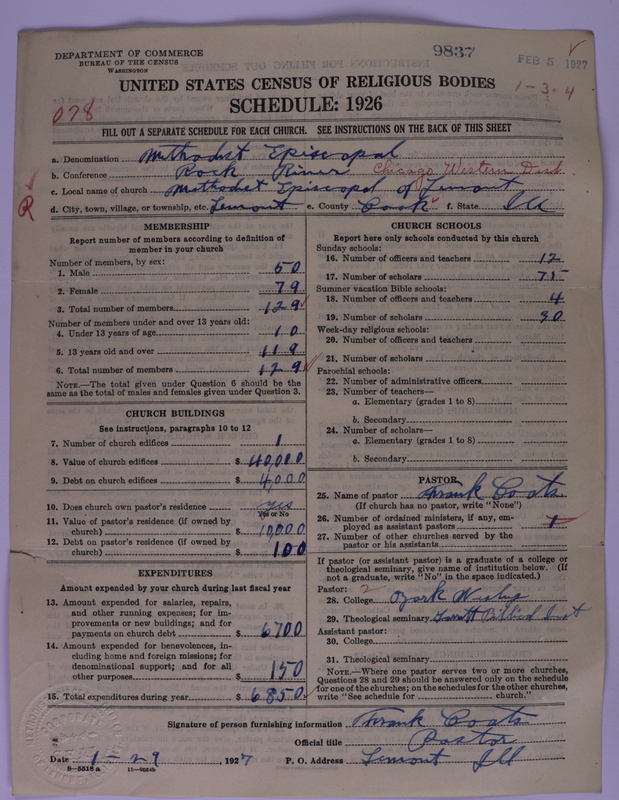 DEPARTMENT OF COMMERCE
BUREAU OF THE CENSUS
WASHINGTON
9837
FEB 5 1927
1-3-4
UNITED STATES CENSUS OF RELIGIOUS BODIES
SCHEDULE: 1926
078
FILL OUT A SEPARATE SCHEDULE FOR EACH CHURCH. SEE INSTRUCTIONS ON THE BACK OF THIS SHEET
a. Denomination Methodist Episcopal
b. Conference Rock River Chicago Western Dist.
c. Local name of church Methodist Episcopal of Lemont
d. City, town, village, or township, etc. Lemont e. County Cook f. State Ill
R
MEMBERSHIP
Report number of members according to definition of
member in your church
Number of members, by sex:
1. Male 50
2. Female 79
3. Total number of members 129
Number of members under and over 13 years old:
4. Under 13 years of age 10
5. 13 years old and over 119
6. Total number of members 129
NOTE.—The total given under Question 6 should be the
same as the total of males and females given under Question 3.
CHURCH BUILDINGS
See instructions, paragraphs 10 to 12
7. Number of church edifices 1
8. Value of church edifices $ 40,000
9. Debt on church edifices $ 4,000
10. Does church own pastor's residence yes
Yes or No
11. Value of pastor's residence (if owned by
church) $ 10,000
12. Debt on pastor's residence (if owned by
church) $ 100
EXPENDITURES
Amount expended by your church during last fiscal year
13. Amount expended for salaries, repairs,
and other running expenses; for im-
provements or new buildings; and for
payments on church debt $ 6700
14. Amount expended for benevolences, in-
cluding home and foreign missions; for
denominational support; and for all
other purposes $ 150
15. Total expenditures during year $ 6850
CHURCH SCHOOLS
Report here only schools conducted by this church
Sunday schools:
16. Number of officers and teachers 12
17. Number of scholars 75
Summer vacation Bible schools:
18. Number of officers and teachers 4
19. Number of scholars 30
Week-day religious schools:
20. Number of officers and teachers
21. Number of scholars
Parochial schools:
22. Number of administrative officers
23. Number of teachers—
a. Elementary (grades 1 to 8)
b. Secondary
24. Number of scholars—
a. Elementary (grades 1 to 8)
b. Secondary
PASTOR
25. Name of pastor Frank Coats
(If church has no pastor, write "None")
26. Number of ordained ministers, if any, em-
ployed as assistant pastors 1
27. Number of other churches served by the
pastor or his assistants
If pastor (or assistant pastor) is a graduate of a college or
theological seminary, give name of institution below. (If
not a graduate, write "No" in the space indicated.)
Pastor: 2
28. College Ozark Wesley
29. Theological seminary Garrett Biblical Inst
Assistant pastor:
30. College
31. Theological seminary
NOTE.—Where one pastor serves two or more churches,
Questions 28 and 29 should be answered only on the schedule
for one of the churches; on the schedules for the other churches,
write "See schedule for church."
Signature of person furnishing information Frank Coats
Official title Pastor
Date 1-29, 1927 P. O. Address Lemont Ill
8—5516 a 11—9024b